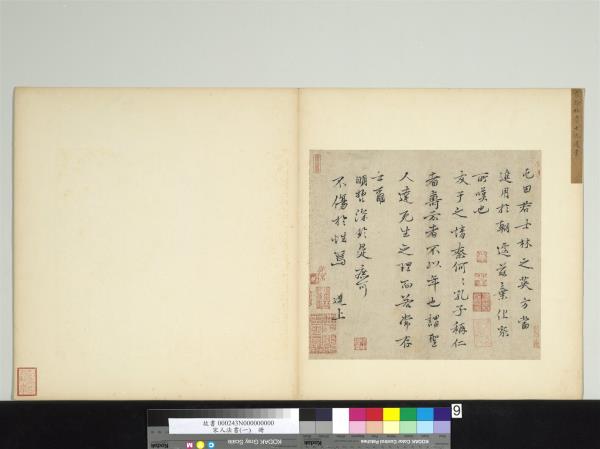 屯田君士林之英方當
進用於朝遽茲棄代衆
所嘆也
友于之情奈何〻孔子稱仁
者壽云者不以年也謂聖
人達死生之理而若常存
云爾
明哲深於是庶可
不傷於性焉 道上
故書 000243N000000000
宋人法書(一) 冊
KODAK Gray Scale
KODAK Color Control Patches
9